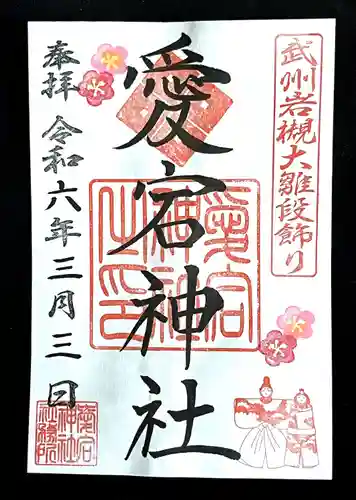 武州岩槻大雛段飾り
愛宕神社
奉拝 令和六年三月三日
愛宕神社之印
愛宕神社社務所